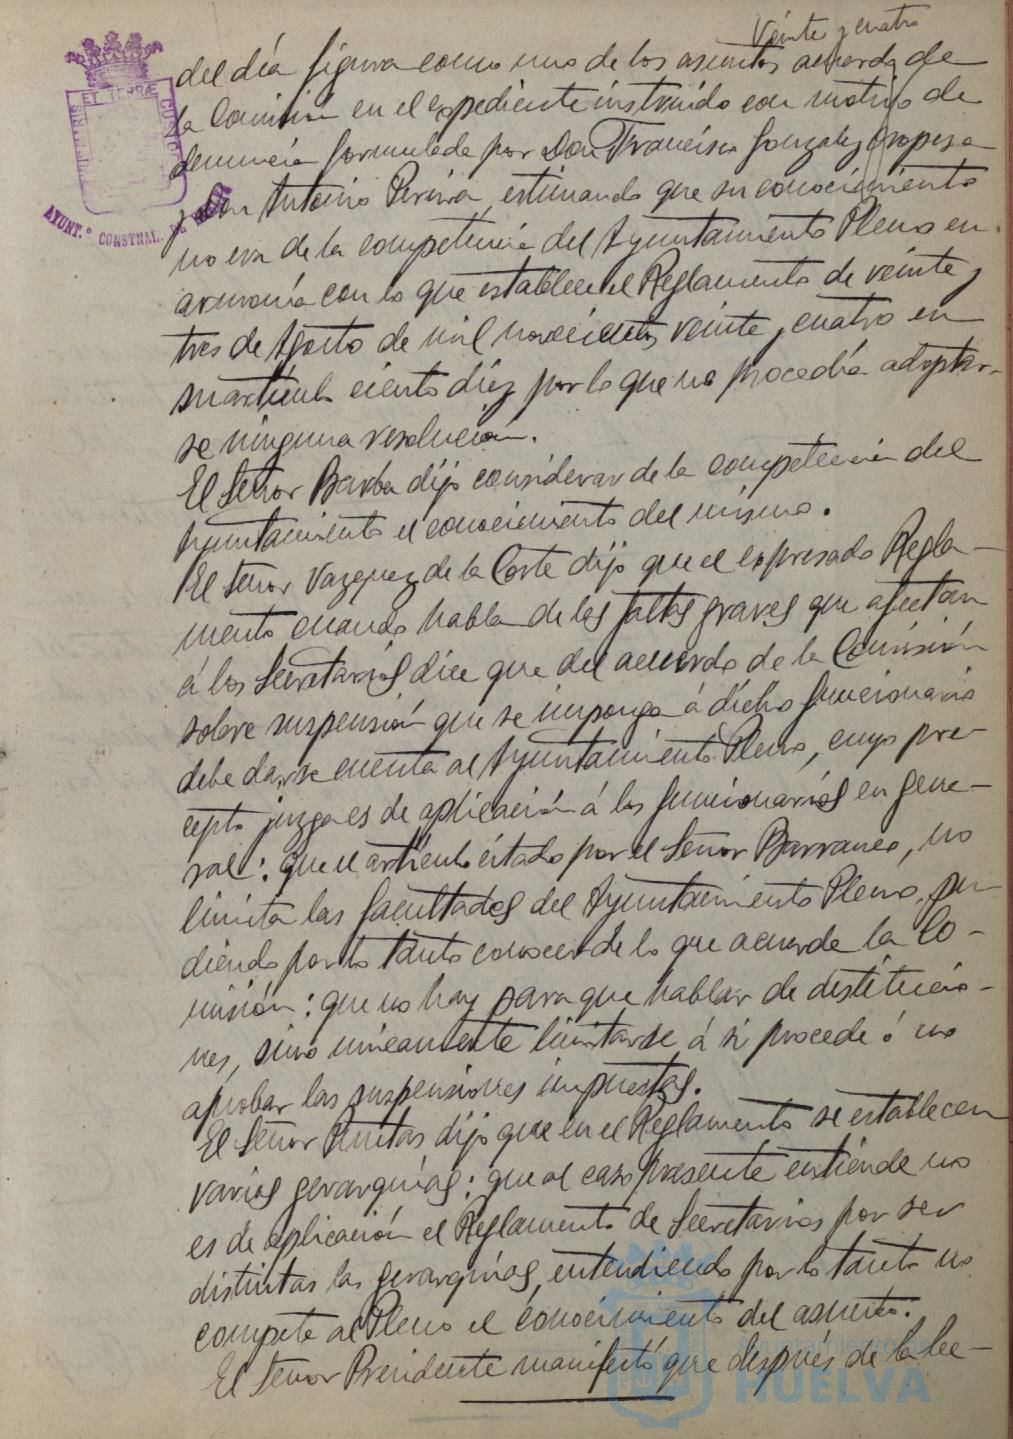 Veinte y cuatro
del día figura como uno de los asuntos acuerdo de
la Comisión en el expediente instruido con motivo de
denuncia formulada por Don Francisco Gonzalez Oropesa
y Don Antonio Pereira, estimando que su conocimiento
no era de la competencia del Ayuntamiento Pleno en
armonía con lo que establece el Reglamento de veinte y
tres de Agosto de mil novecientos veinte y cuatro en
su artículo ciento diez por lo que no procedía adoptar-
se ninguna resolución.
El Señor Barba dijo considerar de la competencia del
Ayuntamiento el conocimiento del mismo.
El Señor Vazquez de la Corte dijo que el expresado Regla-
mento cuando habla de las faltas graves que afectan
á los Secretarios dice que del acuerdo de la Comisión
sobre suspensión que se imponga á dicho funcionario
debe darse cuenta al Ayuntamiento Pleno, cuyo pre-
cepto juzga es de aplicación á los funcionarios en gene-
ral: que el artículo citado por el Señor Barranco, no
limita las facultades del Ayuntamiento Pleno, pu-
diendo por lo tanto conocer de lo que acuerde la Co-
misión: que no hay para que hablar de destitucio-
nes, sino unicamente limitarse á si procede ó no
aprobar las suspensiones impuestas.
El Señor dijo que en el Reglamento se establecen
varias gerarquías: que al caso presente entiende no
es de aplicación el Reglamento de Secretarios por ser
distintas las gerarquías, entendiendo por lo tanto no
compete al Pleno el conocimiento del asunto.
El Señor Presidente manifestó que después de la lec-
ET TERRÆ CUSTO
AYUNT.º CONSTNAL. DE
HUELVA